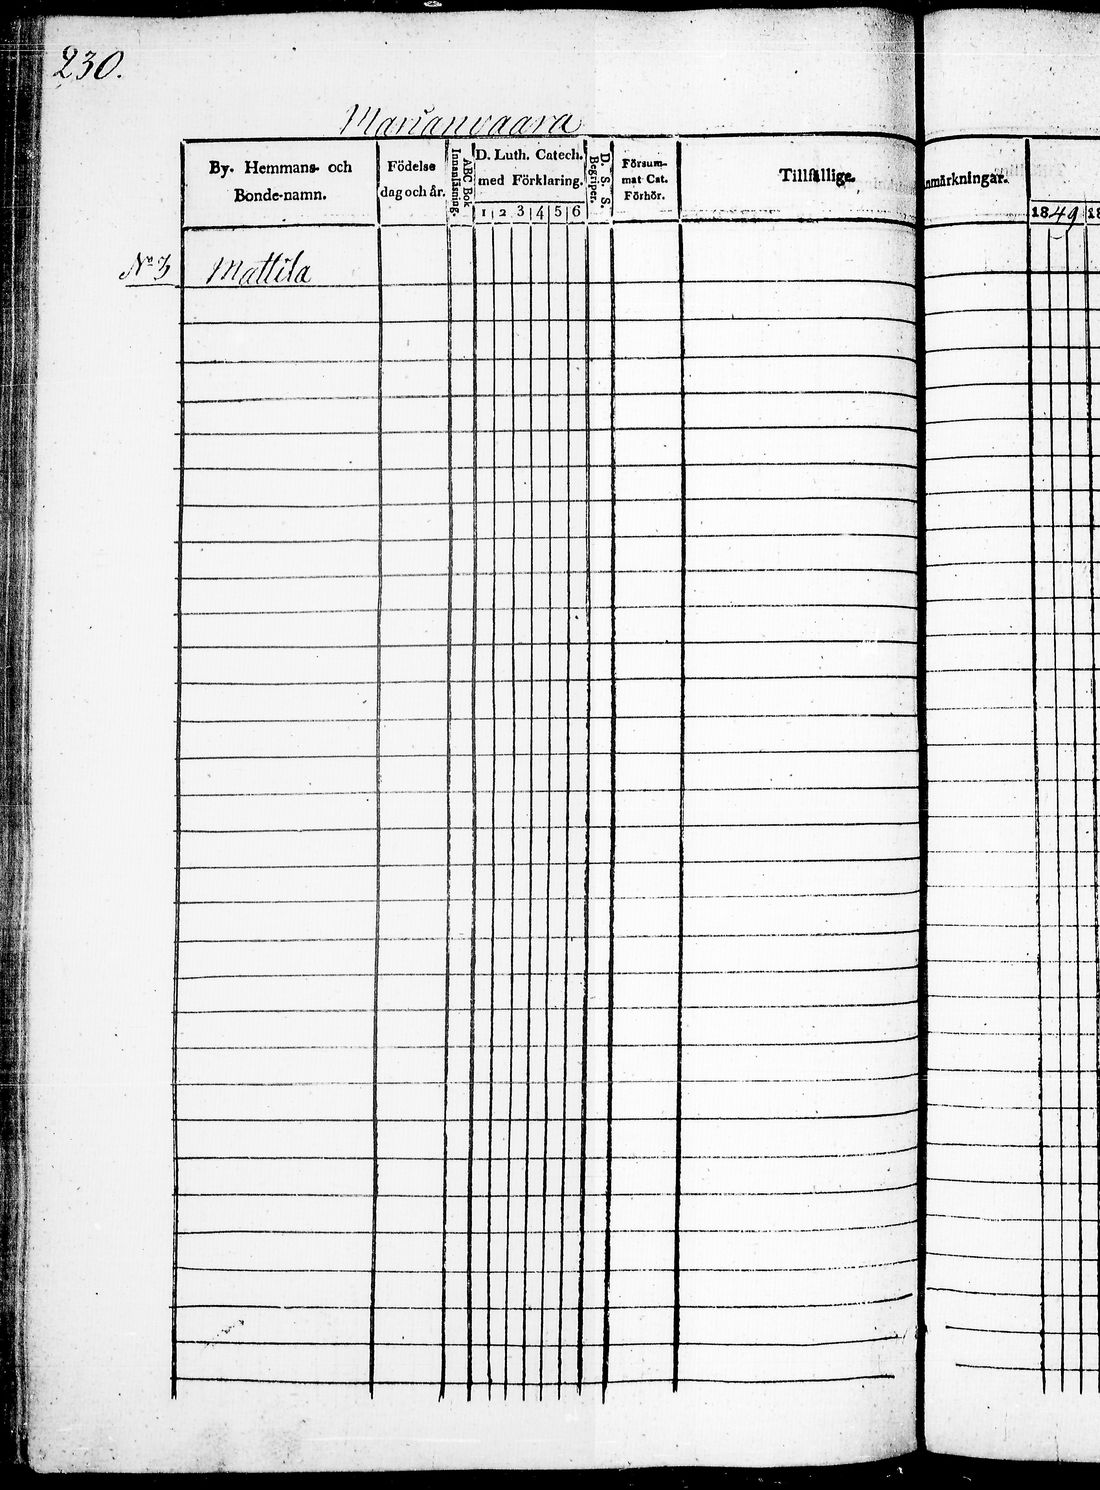 230.
Marianvaara
By. Hemmans- och
Bonde-namn.
Födelse
dag och år.
ABC Bok
Innanläsning.
D. Luth. Catech.
med Förklaring.
1 2 3 4 5 6
D. S. S.
Begriper.
Försum-
mat Cat.
Förhör.
Tillfällige.
nmärkningar.
1849 18
No 3 Mattila